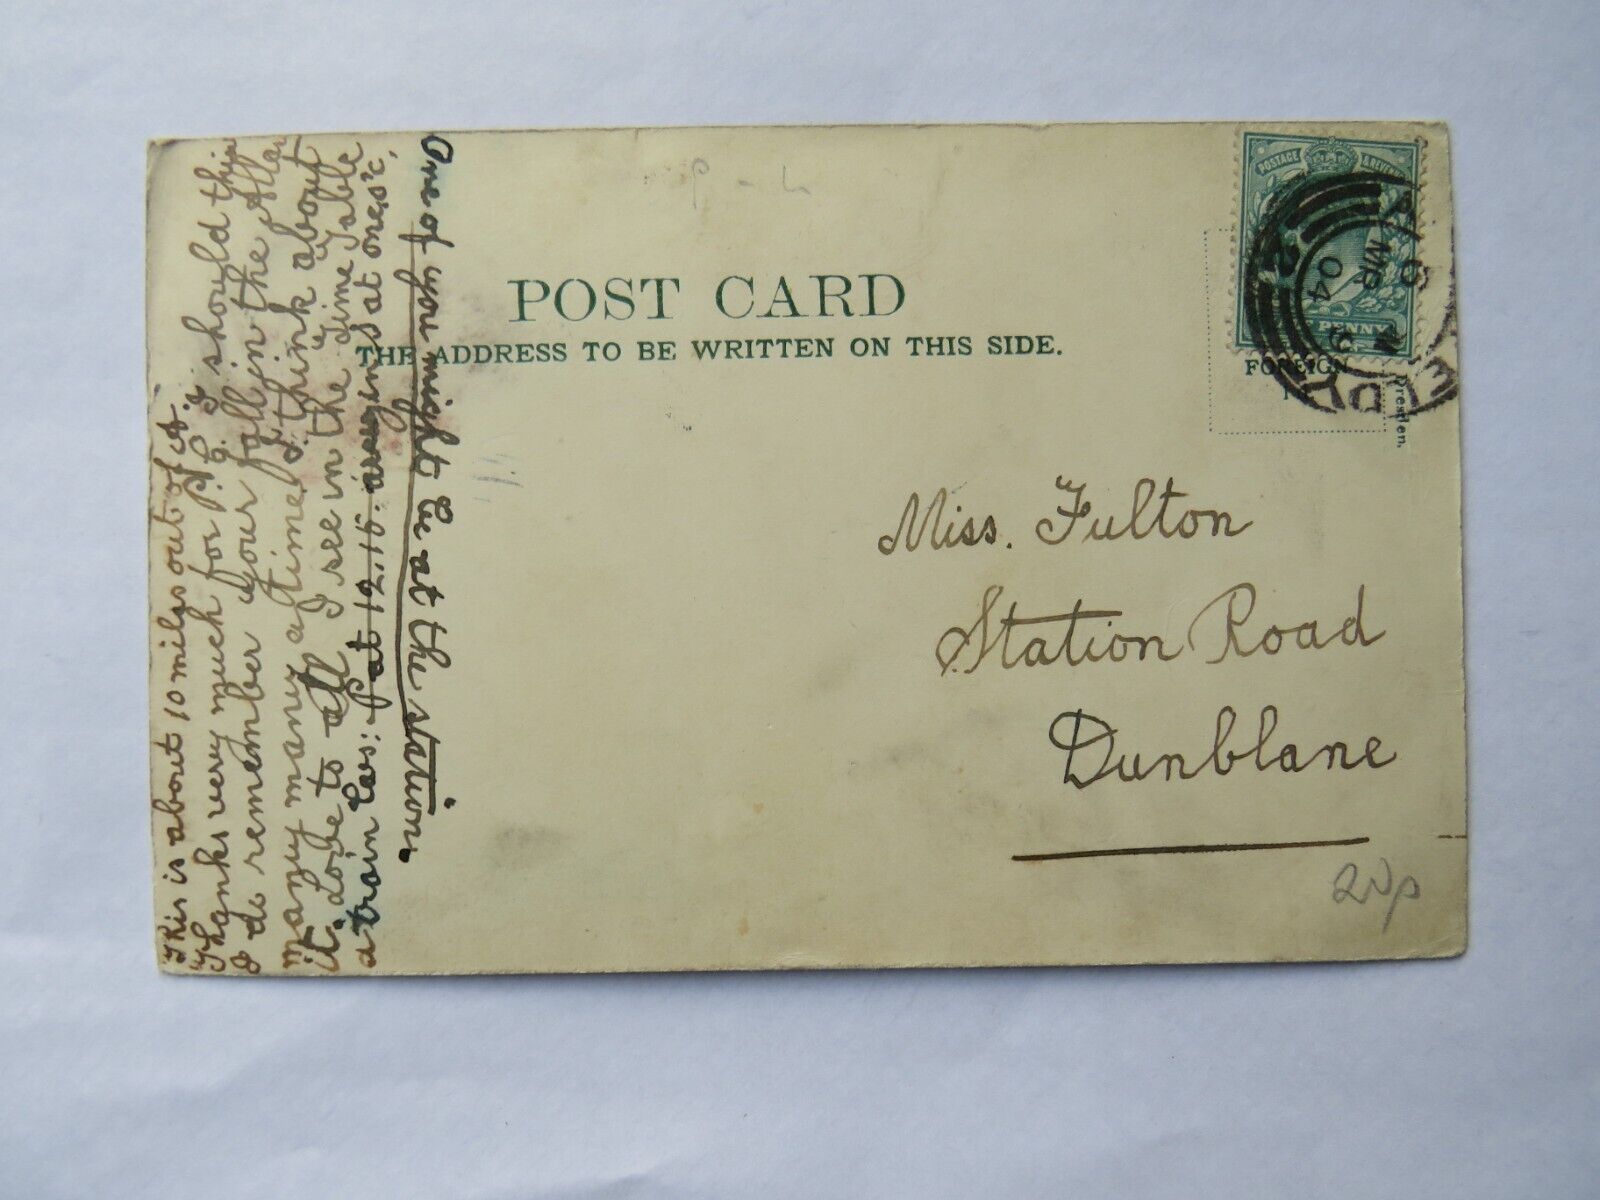 POST CARD
THE ADDRESS TO BE WRITTEN ON THIS SIDE.
POSTAGE & REVENUE
PENNY
MR
04
FOREIGN
Dresden.
Miss. Fulton
Station Road
Dunblane
20p
This is about 10 miles out of A.
Thanks very much for P.C. I should think
I do remember your fall in the Allan
many many a time I think about
it. Love to all I see in the Time Table
a train lvs: P at 12.15. arryin S at one, o'c,
One of you might be at the station.